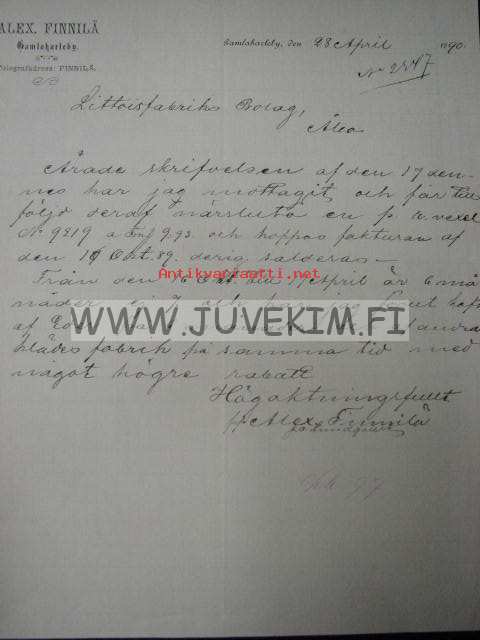 ALEX. FINNILÄ
Gamlakarleby.
Telegrafadress: FINNILÄ.
Gamlakarleby, den 28 April 1890.
No 2547
Littoisfabriks Bolag,
Åbo
Ärade skrifvelsen af den 17 den-
nes har jag mottagit och får till
följd deraf närsluta en p a. vexel
No. 9219 a Fmf 9.93. och hoppas fakturan af
den 16 Okt. 89. derig. salderas –
Från den 16 Okt. till 17 April är 6 må
nader
af
klädesfabrik på samma tid med
något högre rabatt
Högaktningsfullt
Alex. Finnilä
Antikvariaatti.net
WWW.JUVEKIM.FI